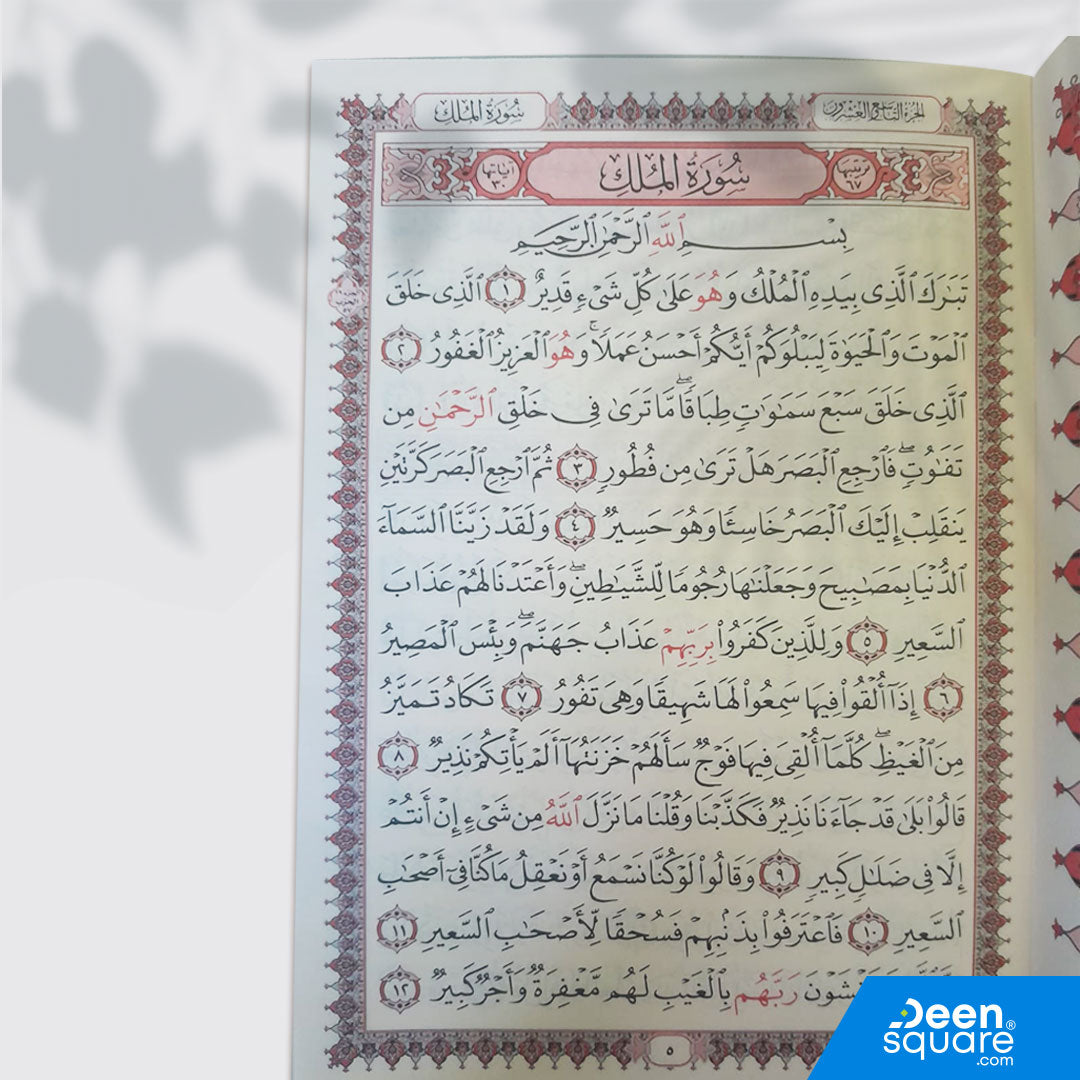 الجزء التاسع والعشرون
سُورَةُ الْمُلْكِ
ترتيبها ٦٧
سُورَةُ الْمُلْكِ
آياتها ٣٠
بِسْمِ ٱللَّهِ ٱلرَّحْمَٰنِ ٱلرَّحِيمِ
تَبَٰرَكَ ٱلَّذِى بِيَدِهِ ٱلْمُلْكُ وَهُوَ عَلَىٰ كُلِّ شَىْءٍ قَدِيرٌ ١ ٱلَّذِى خَلَقَ
ٱلْمَوْتَ وَٱلْحَيَوٰةَ لِيَبْلُوَكُمْ أَيُّكُمْ أَحْسَنُ عَمَلًا ۚ وَهُوَ ٱلْعَزِيزُ ٱلْغَفُورُ ٢
ٱلَّذِى خَلَقَ سَبْعَ سَمَٰوَٰتٍ طِبَاقًا ۖ مَّا تَرَىٰ فِى خَلْقِ ٱلرَّحْمَٰنِ مِن
تَفَٰوُتٍ ۖ فَٱرْجِعِ ٱلْبَصَرَ هَلْ تَرَىٰ مِن فُطُورٍ ٣ ثُمَّ ٱرْجِعِ ٱلْبَصَرَ كَرَّتَيْنِ
يَنقَلِبْ إِلَيْكَ ٱلْبَصَرُ خَاسِئًا وَهُوَ حَسِيرٌ ٤ وَلَقَدْ زَيَّنَّا ٱلسَّمَآءَ
ٱلدُّنْيَا بِمَصَٰبِيحَ وَجَعَلْنَٰهَا رُجُومًا لِّلشَّيَٰطِينِ ۖ وَأَعْتَدْنَا لَهُمْ عَذَابَ
ٱلسَّعِيرِ ٥ وَلِلَّذِينَ كَفَرُوا۟ بِرَبِّهِمْ عَذَابُ جَهَنَّمَ ۖ وَبِئْسَ ٱلْمَصِيرُ
٦ إِذَآ أُلْقُوا۟ فِيهَا سَمِعُوا۟ لَهَا شَهِيقًا وَهِىَ تَفُورُ ٧ تَكَادُ تَمَيَّزُ
مِنَ ٱلْغَيْظِ ۖ كُلَّمَآ أُلْقِىَ فِيهَا فَوْجٌ سَأَلَهُمْ خَزَنَتُهَآ أَلَمْ يَأْتِكُمْ نَذِيرٌ ٨
قَالُوا۟ بَلَىٰ قَدْ جَآءَنَا نَذِيرٌ فَكَذَّبْنَا وَقُلْنَا مَا نَزَّلَ ٱللَّهُ مِن شَىْءٍ إِنْ أَنتُمْ
إِلَّا فِى ضَلَٰلٍ كَبِيرٍ ٩ وَقَالُوا۟ لَوْ كُنَّا نَسْمَعُ أَوْ نَعْقِلُ مَا كُنَّا فِىٓ أَصْحَٰبِ
ٱلسَّعِيرِ ١٠ فَٱعْتَرَفُوا۟ بِذَنۢبِهِمْ فَسُحْقًا لِّأَصْحَٰبِ ٱلسَّعِيرِ ١١
رَبَّهُم بِٱلْغَيْبِ لَهُم مَّغْفِرَةٌ وَأَجْرٌ كَبِيرٌ ١٢
٥
Deen
square®
.com